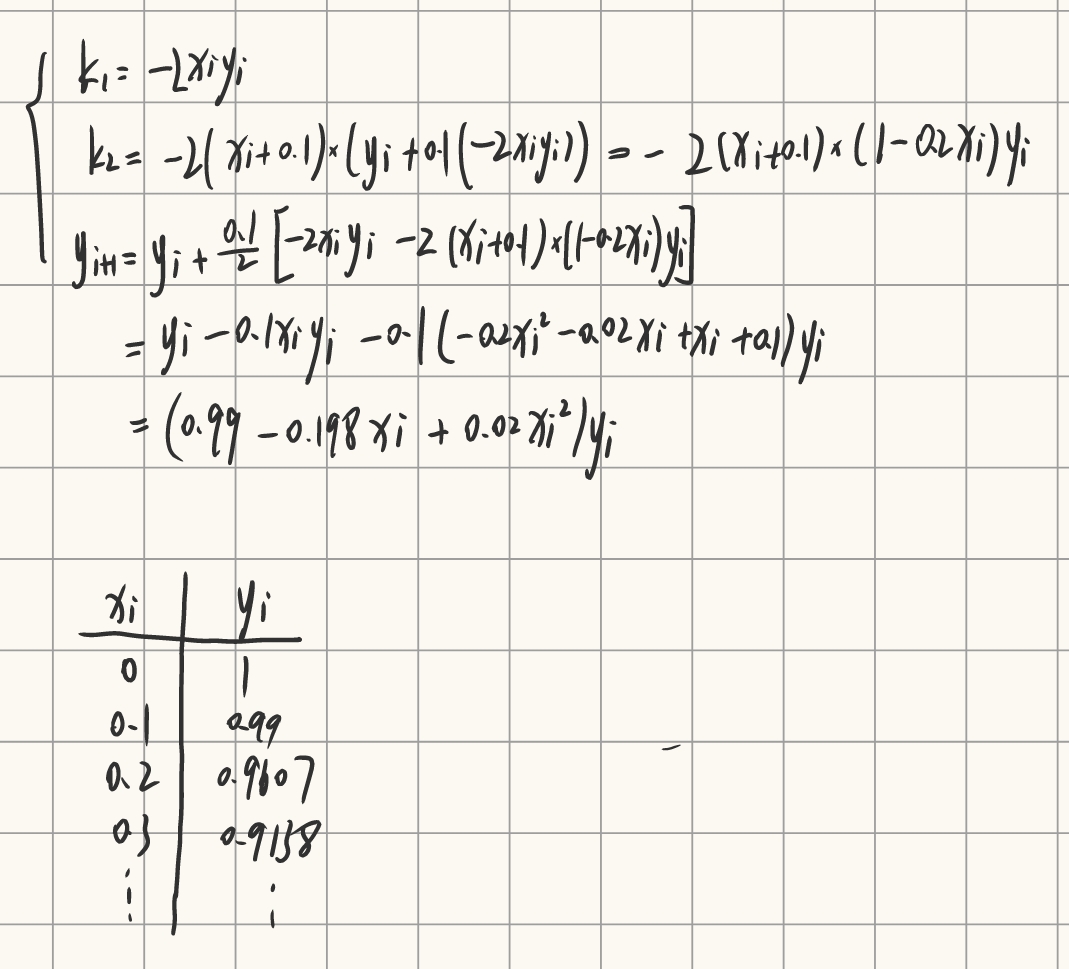 k₁ = -2xᵢyᵢ
k₂ = -2(xᵢ+0.1)×(yᵢ+0.1(-2xᵢyᵢ)) = -2(xᵢ+0.1)×(1-0.2xᵢ)yᵢ
yᵢ₊₁ = yᵢ + 0.1/2 [-2xᵢyᵢ -2(xᵢ+0.1)×(1-0.2xᵢ)yᵢ]
= yᵢ -0.1xᵢyᵢ -0.1(-0.2xᵢ² -0.02xᵢ +xᵢ +0.1)yᵢ
= (0.99 -0.198xᵢ + 0.02xᵢ²)yᵢ
xᵢ yᵢ
0 1
0.1 0.99
0.2 0.9607
0.3 0.9138
⋮ ⋮